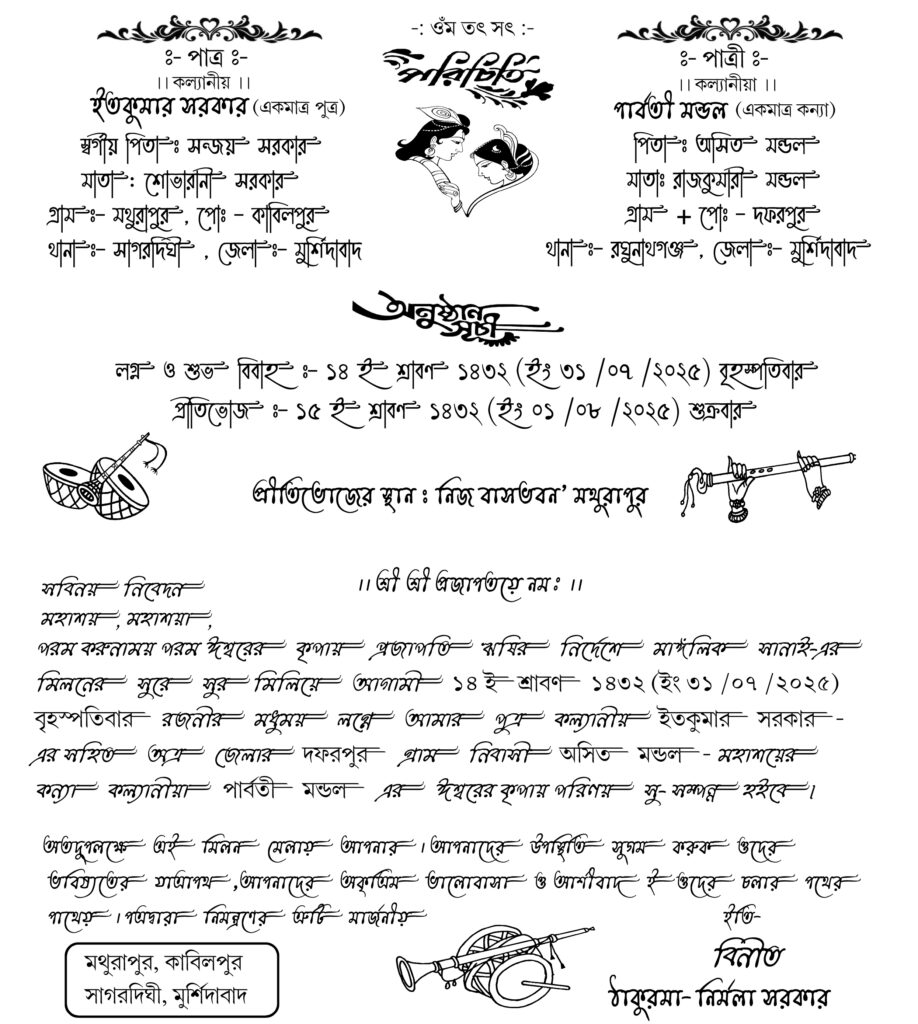 -: ওঁম তৎ সৎ :-
পরিচিতি
ঃ- পাত্র ঃ-
।। কল্যানীয় ।।
ইতকুমার সরকার (একমাত্র পুত্র)
স্বর্গীয় পিতাঃ সন্জয় সরকার
মাতা : শোভারানী সরকার
গ্রাম ঃ- মথুরাপুর , পোঃ - কাবিলপুর
থানা ঃ- সাগরদিঘী , জেলা ঃ- মুর্শিদাবাদ
ঃ- পাত্রী ঃ-
।। কল্যানীয়া ।।
পার্বতী মন্ডল (একমাত্র কন্যা)
পিতা ঃ অসিত মন্ডল
মাতাঃ রাজকুমারী মন্ডল
গ্রাম + পোঃ - দফরপুর
থানা ঃ- রঘুনাথগঞ্জ , জেলা ঃ- মুর্শিদাবাদ
অনুষ্ঠান
সূচী
লগ্ন ও শুভ বিবাহ ঃ- ১৪ ই শ্রাবণ ১৪৩২ (ইং ৩১ /০৭ /২০২৫) বৃহস্পতিবার
প্রীতিভোজ ঃ- ১৫ ই শ্রাবণ ১৪৩২ (ইং ০১ /০৮ /২০২৫) শুক্রবার
প্রীতিভোজের স্থান : নিজ বাসভবন’ মথুরাপুর
।। শ্রী শ্রী প্রজাপতয়ে নমঃ ।।
সবিনয় নিবেদন
মহাশয় , মহাশয়া ,
পরম করুনাময় পরম ঈশ্বরের কৃপায় প্রজাপতি ঋষির নির্দেশে মাঙ্গলিক সানাই-এর
মিলনের সুরে সুর মিলিয়ে আগামী ১৪ ই শ্রাবণ ১৪৩২ (ইং ৩১ /০৭ /২০২৫)
বৃহস্পতিবার রজনীর মধুময় লগ্নে আমার পুত্র কল্যানীয় ইতকুমার সরকার -
এর সহিত অত্র জেলার দফরপুর গ্রাম নিবাসী অসিত মন্ডল - মহাশয়ের
কন্যা কল্যানীয়া পার্বতী মন্ডল এর ঈশ্বরের কৃপায় পরিণয় সু- সম্পন্ন হইবে।
অতদুপলক্ষে এই মিলন মেলায় আপনার । আপনাদের উপস্থিতি সুগম করুক ওদের
ভবিষ্যতের যাত্রাপথ ,আপনাদের অকৃত্রিম ভালোবাসা ও আশীবাদ ই ওদের চলার পথের
পাথেয় । পত্রদ্বারা নিমন্ত্রণের ত্রুটি মার্জনীয়
ইতি-
বিনীত
ঠাকুরমা- নির্মলা সরকার
মথুরাপুর, কাবিলপুর
সাগরদিঘী, মুর্শিদাবাদ